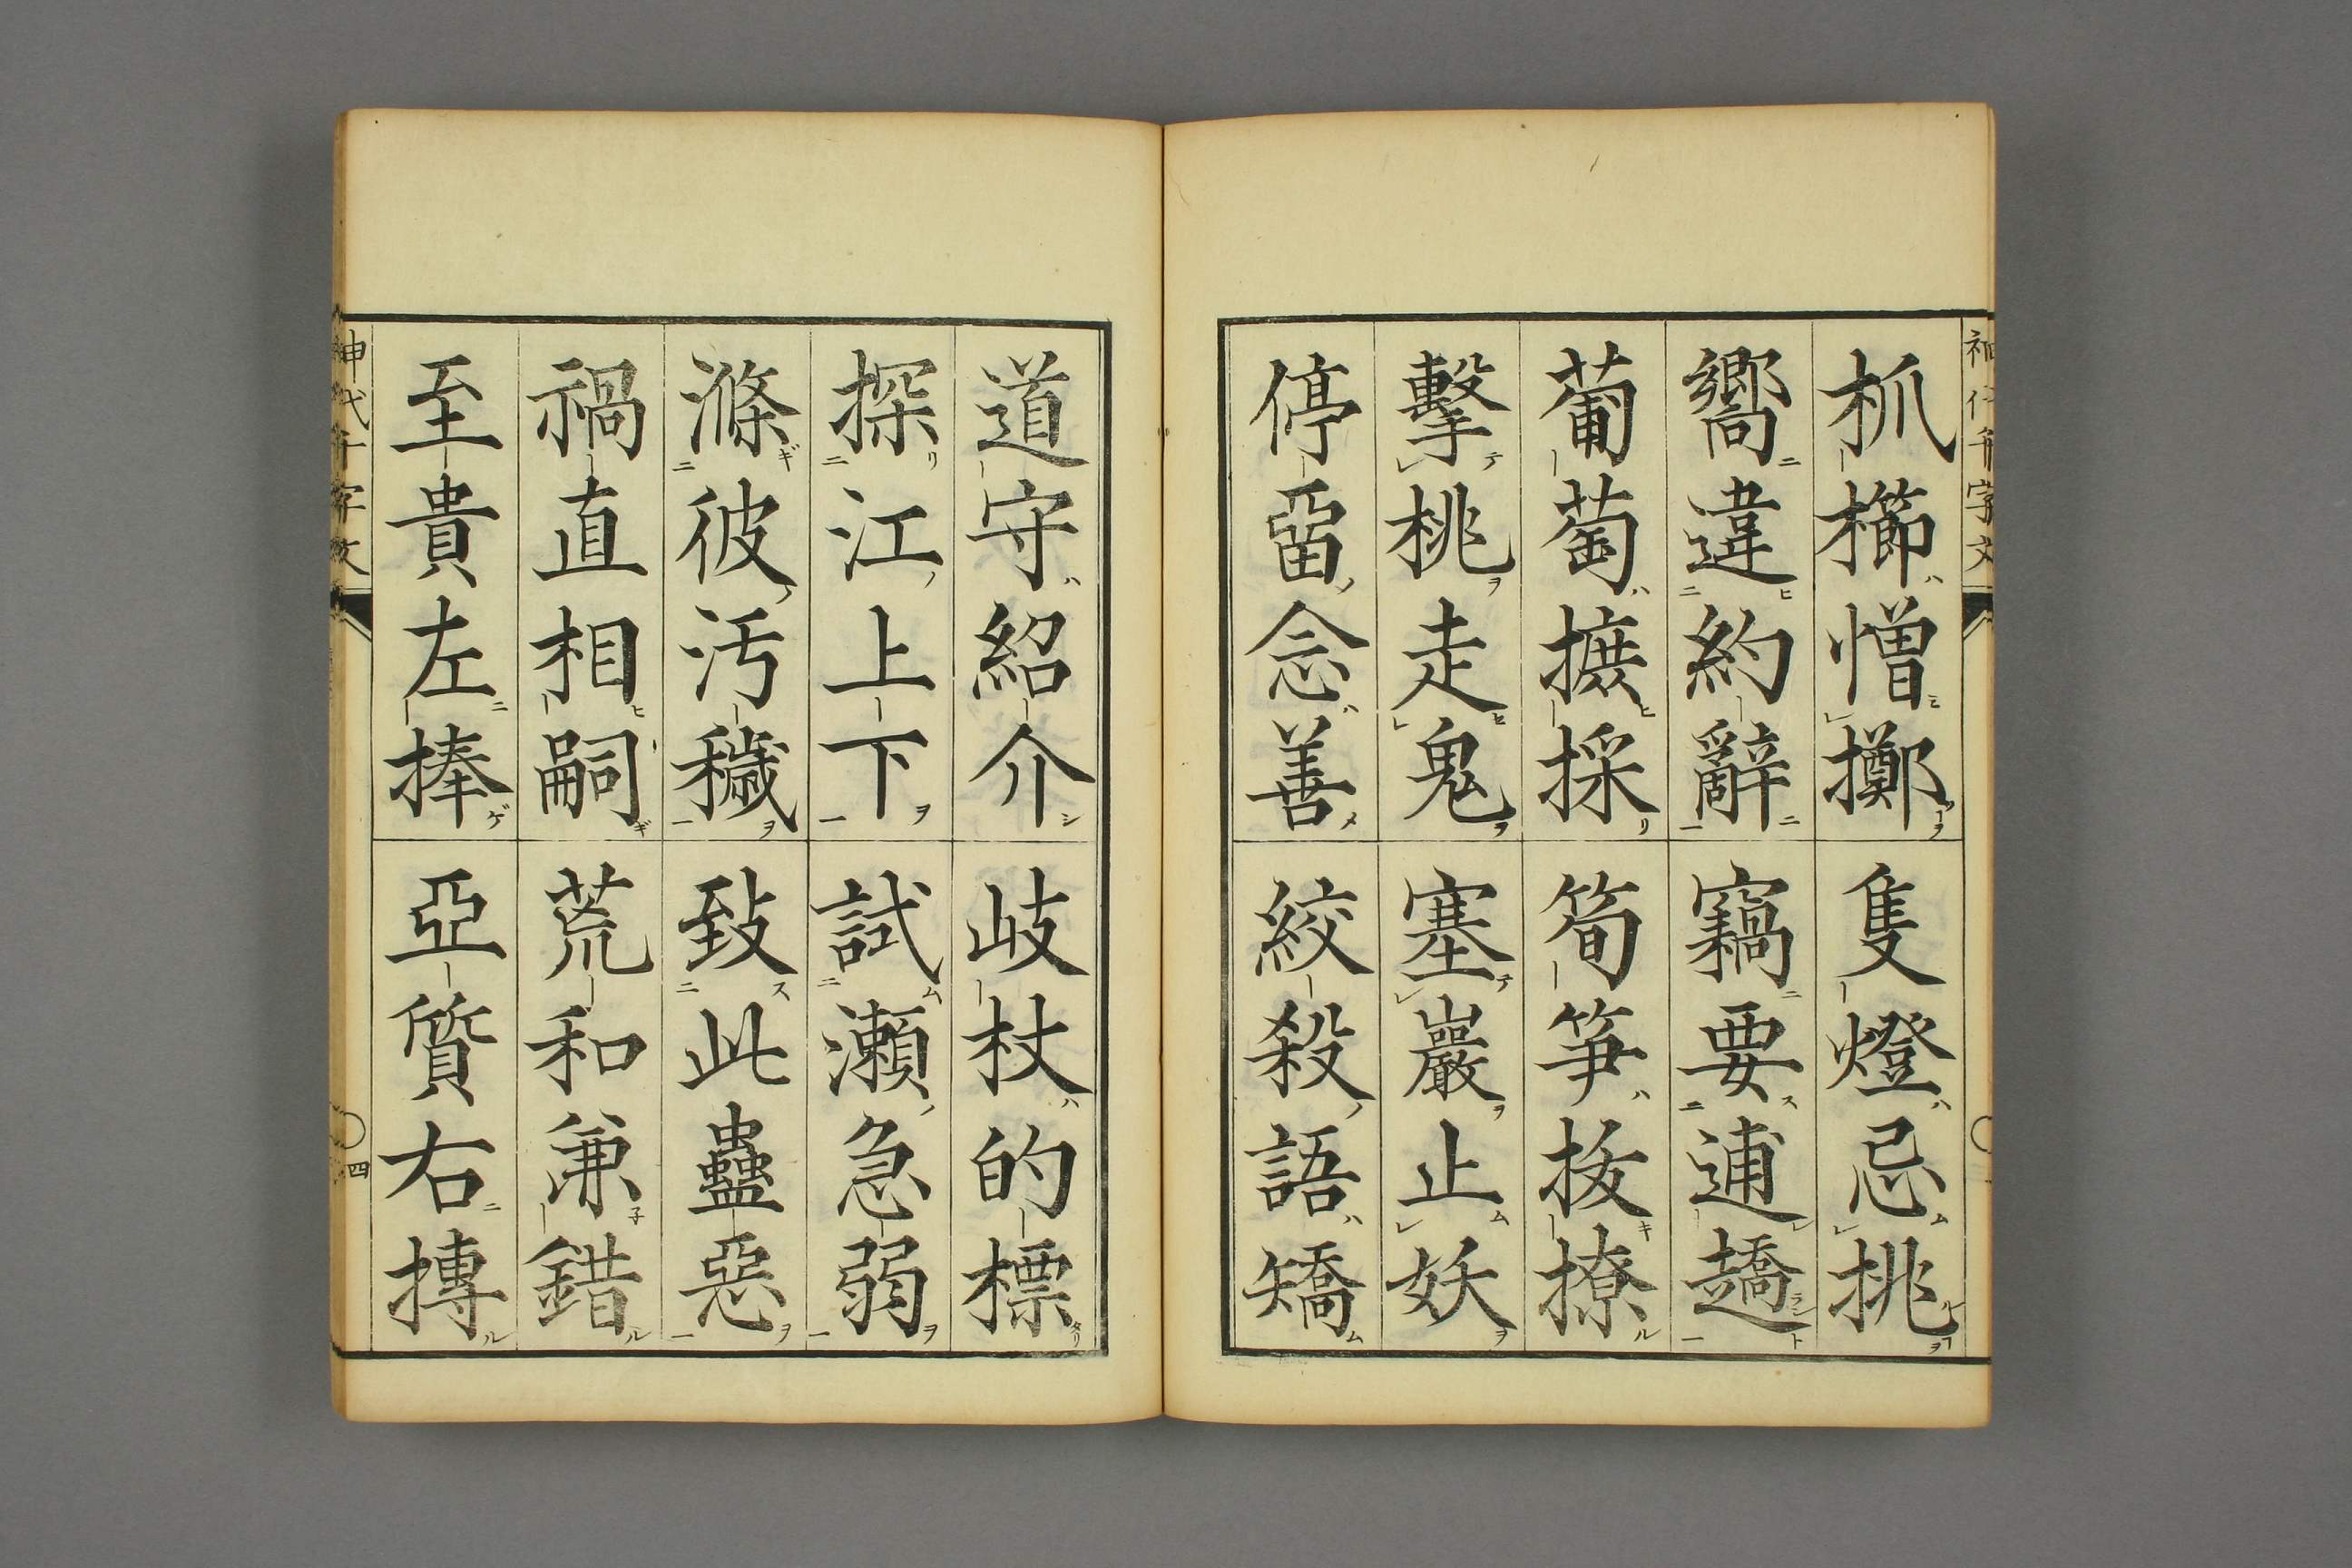 神代千字文
抓櫛憎擲隻燈忌挑
嚮違約辭竊要逋趫
葡萄摭採筍笋拔撩
擊桃走鬼塞巖止妖
停畱念善絞殺語矯
道守紹介歧杖的標
探江上下試瀬急弱
滌彼汚穢致此蠱惡
禍直相嗣荒和兼錯
至貴左捧亞質右摶
神代千字文
四